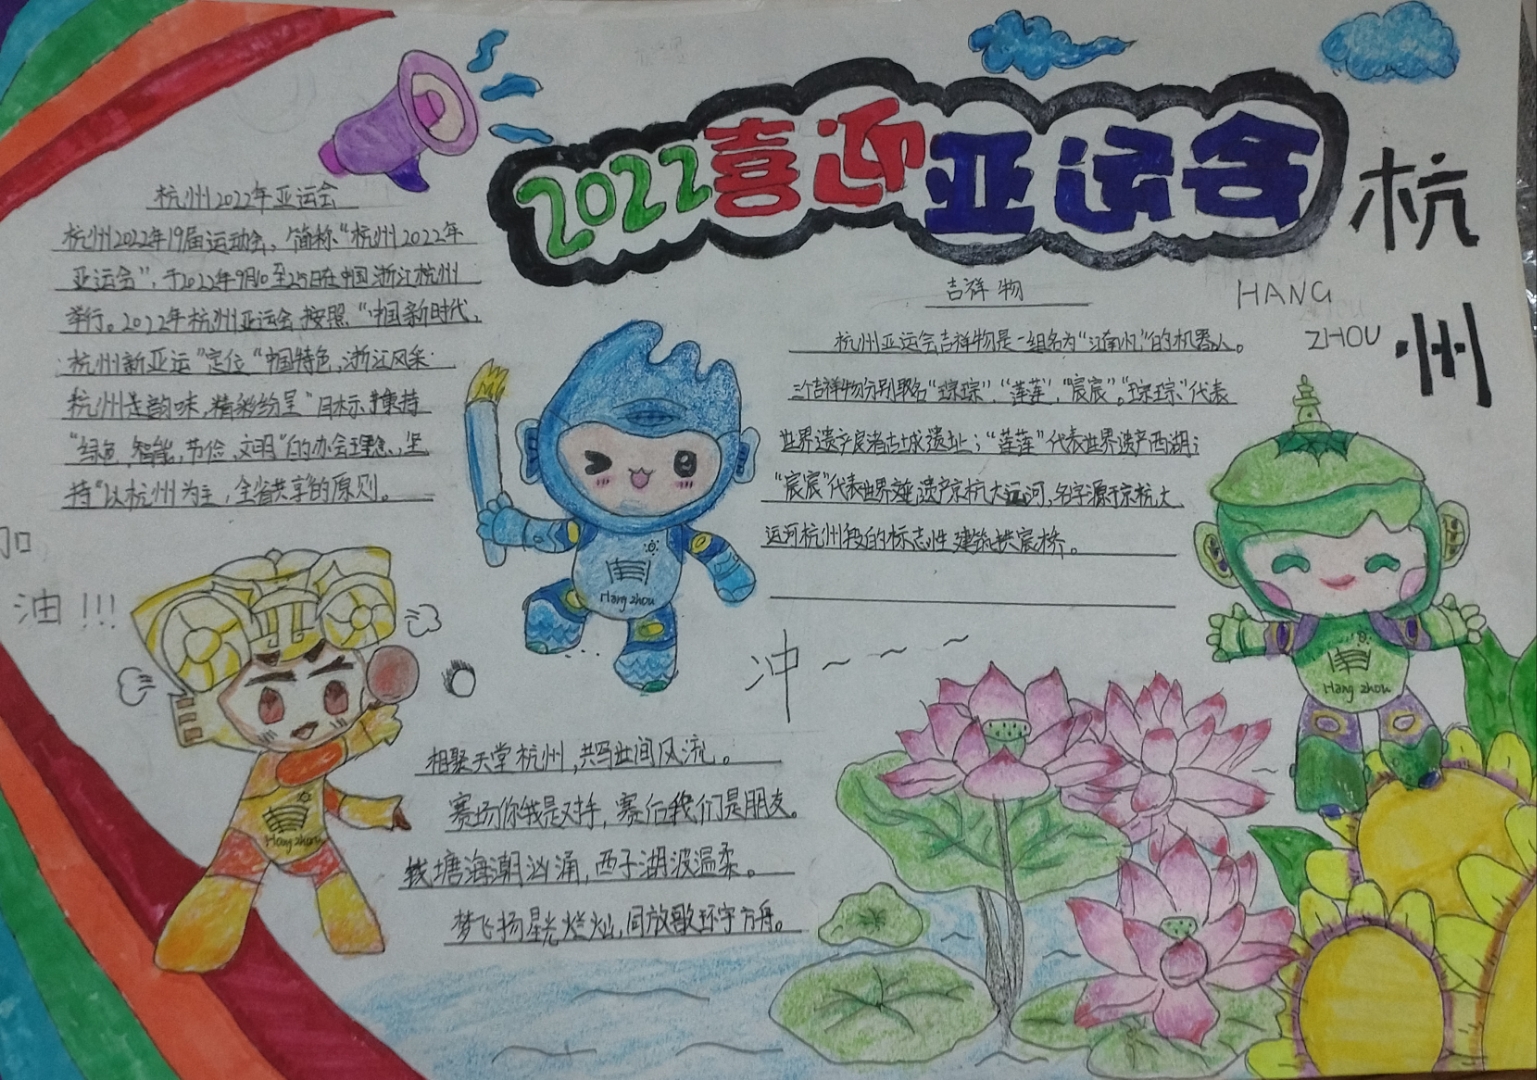 2022喜迎亚运会
杭
州
HANG
ZHOU
杭州2022年亚运会
杭州2022年19届运动会,简称“杭州2022年
亚运会”,于2022年9月10至25日在中国浙江杭州
举行。2022年杭州亚运会按照“中国新时代,
杭州新亚运”定位“中国特色,浙江风采
杭州韵味,精彩纷呈”目标,秉持
“绿色,智能,节俭,文明”的办会理念,坚
持“以杭州为主,全省共享”的原则。
吉祥物
杭州亚运会吉祥物是一组名为“江南忆”的机器人。
三个吉祥物分别取名“琮琮”,“莲莲”,“宸宸”。“琮琮”代表
世界遗产良渚古城遗址;“莲莲”代表世界遗产西湖;
“宸宸”代表世界遗产京杭大运河,名字源于京杭大
运河杭州段的标志性建筑拱宸桥。
加
油!!!
Hang zhou
冲~~~~
Hang zhou
Hang zhou
相聚天堂杭州,共写世间风流。
赛场你我是对手,赛后我们是朋友。
钱塘海潮汹涌,西子湖波温柔。
梦飞扬星光灿烂,同放歌环宇方舟。